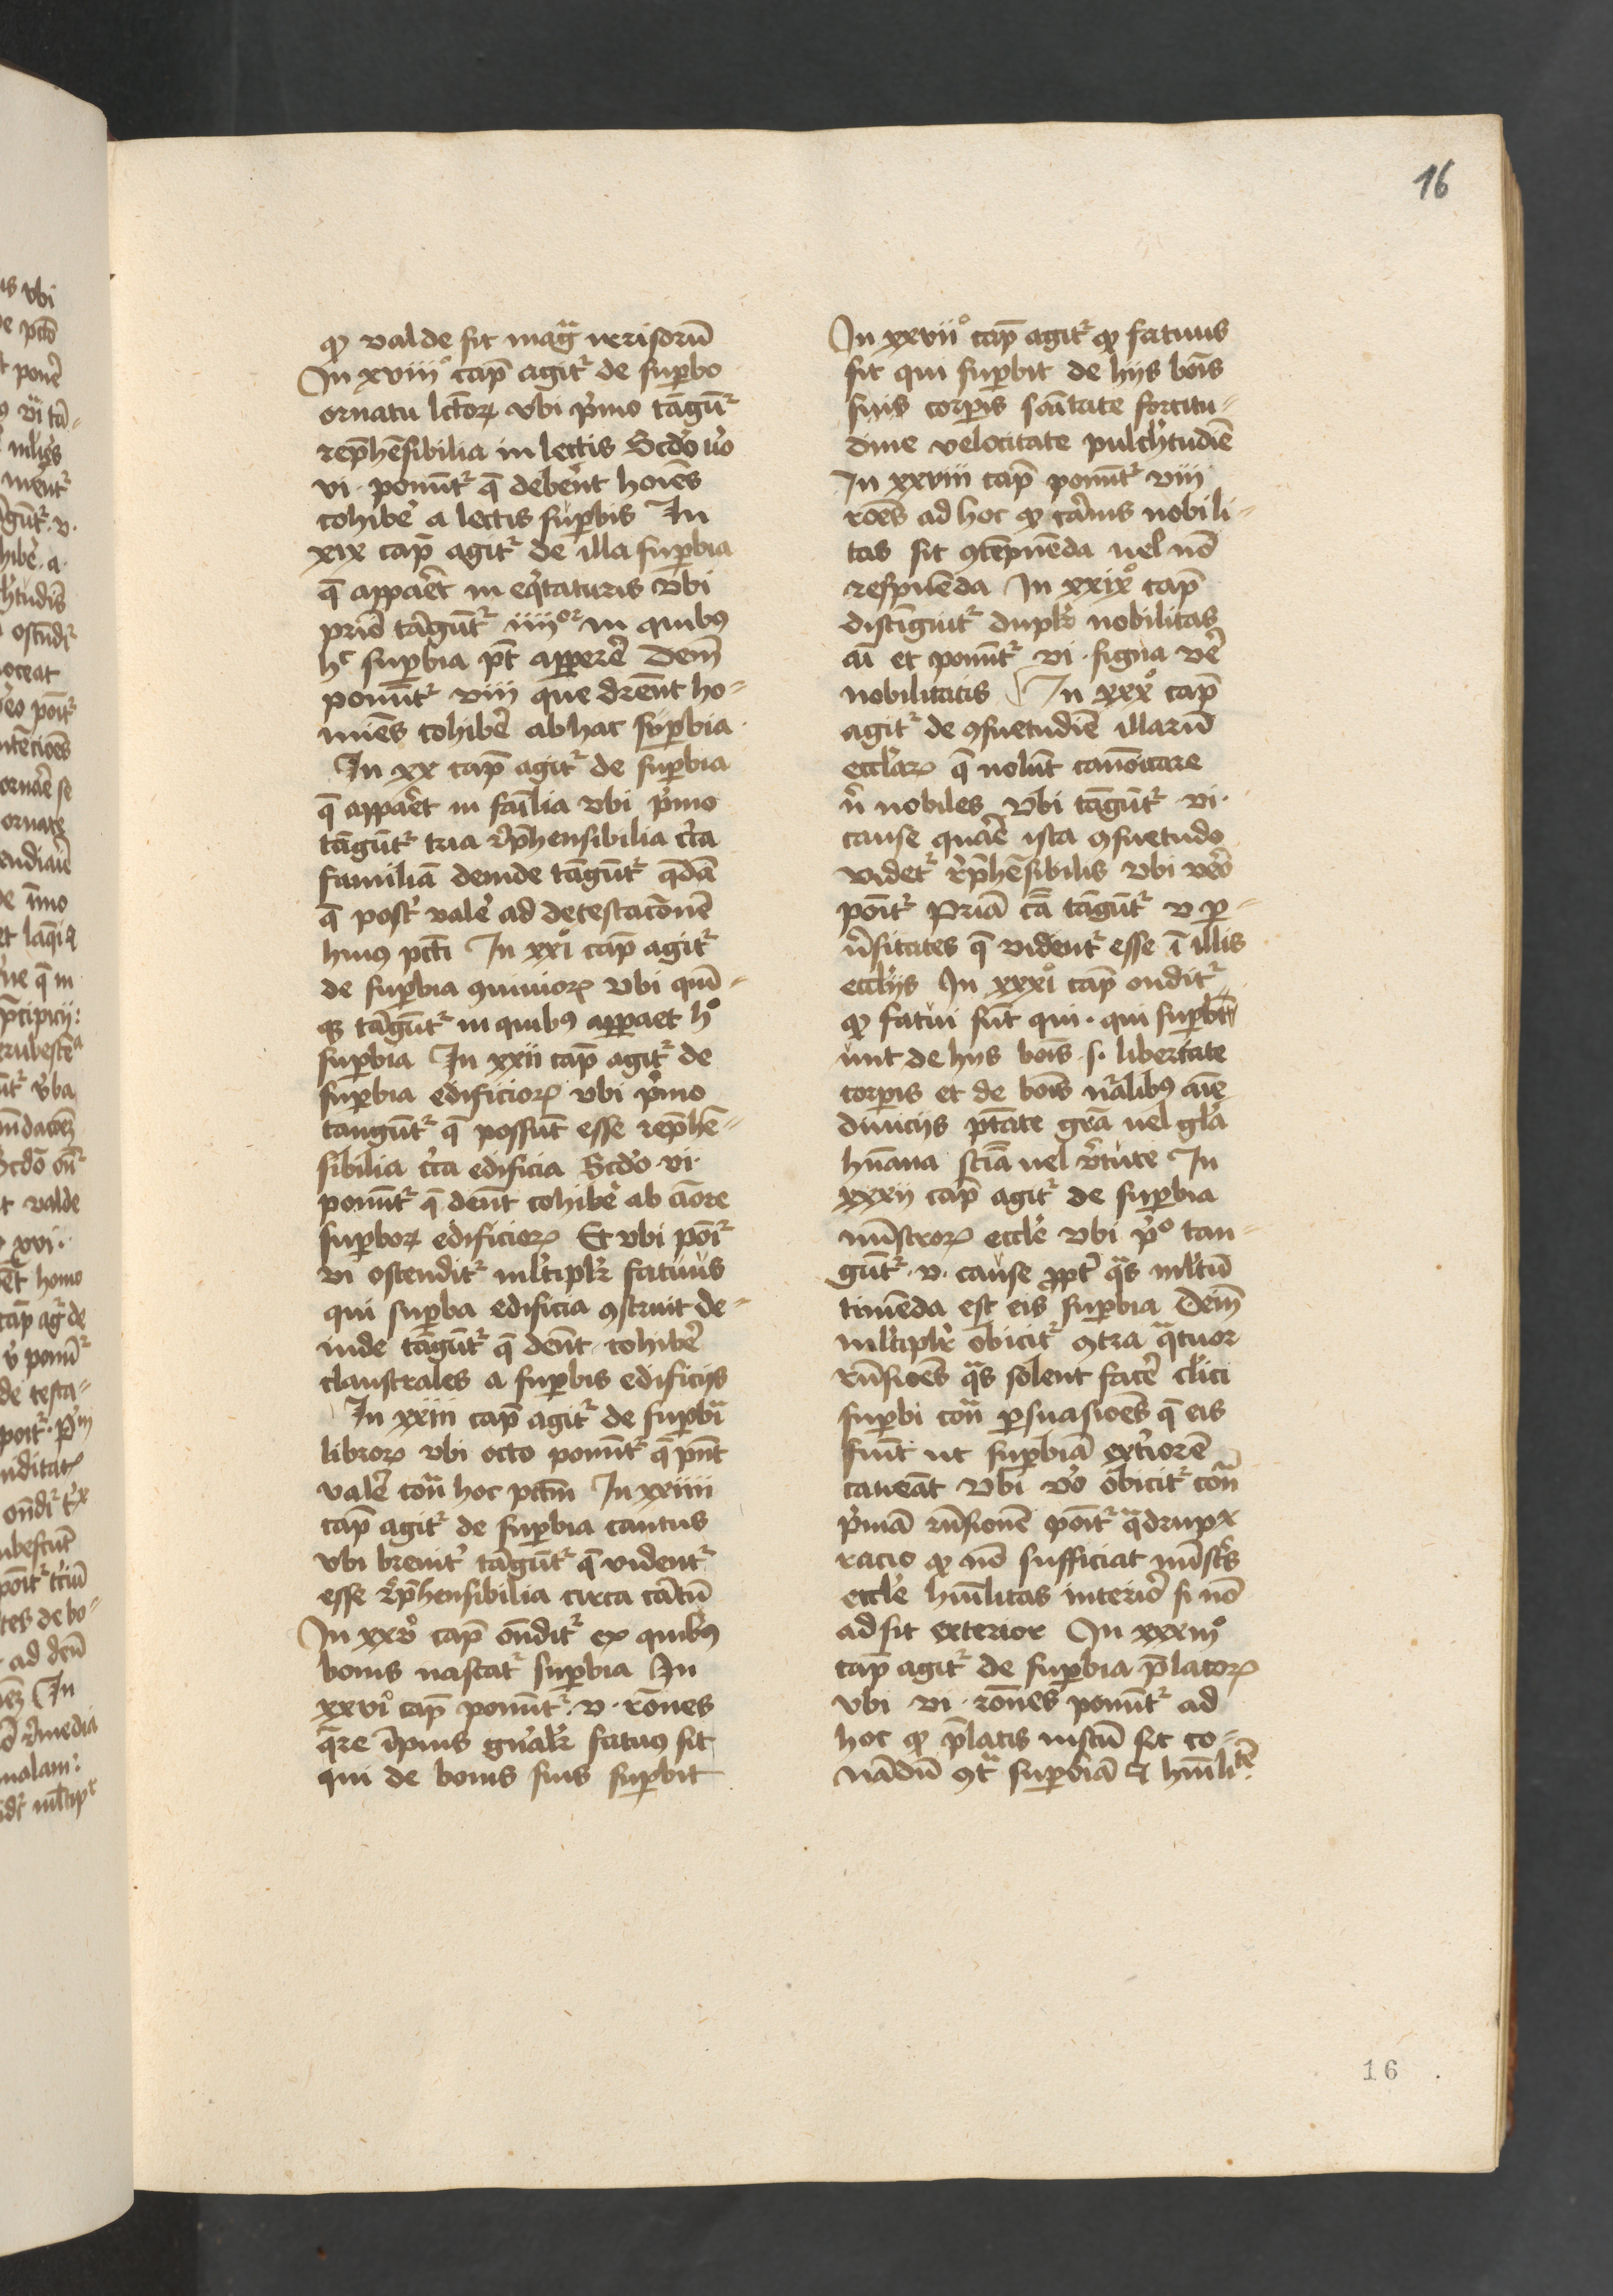 16
ꝙ valde sit mag̃ nerisorũ
In xviiiº cap̃ agitᷣ de suꝑbo
ornatu lc̃torꝝ vbi p̾mo tãgũᷣ
rep̃hẽsibilia in lectis Scd̾o v̾o
vi · ponũtᷣ q̃ debẽnt hoiẽs
cohibe̾ a lectis suꝑbis In
xix cap̃ agitᷣ de illa suꝑbia
q̃ appaȓet in eq̾taturis vbi
priõ tãgũtᷣ iiiiᵒʳ in quibꝰ
hᶜ suꝑbia pt̃ apꝑerẽ Dem̃
ponũtᷣ viii que drẽnt ho⸗
miẽs cohibẽ ab hac suꝑbia ·
In xx cap̃ agitᷣ de suꝑbia
q̃ appaȓet in faĩlia vbi p̾mo
tãgũtᷣ tria r̾p̃hensibilia c̾ta
familiã deinde tãgũtᷣ q̃dã
q̃ post̾ vale̾ ad detestac̃onẽ
huiꝰ pcti̾ In xxiº cap̃ agitᷣ
de suꝑbia ꝯuiuiorꝝ vbi quĩ⸗
qꝫ tãgũtᷣ in quibꝰ apꝑaet hº
suꝑbia In xxii cap̃ agitᷣ de
suꝑbia edificiorꝝ vbi p̾mo
tangũtᷣ q̃ possũt esse rep̃hẽ⸗
sibilia c̾ta edificia Scd̾o · vi ·
ponũtᷣ q̃ dent̃ cohibe̾ ab am̃ore
suꝑborꝝ edificiorꝝ Et vbi poĩᷣ
vi ostenditᷣ ml̾tiplr̾ fatuus
qui suꝑba edificia ꝯstruit de⸗
inde tãgũtᷣ q̃ dent̃ · cohibẽ
claustrales a suꝑbis edificijs
In xxiii cap̃ agitᷣ de suꝑbia
librorꝝ vbi octo ponũtᷣ q̃ pñt
valẽ cont̃ hoc pcctm̃ In xxiiii
cap̃ agitᷣ de suꝑbia cantus
vbi breuit̾ tãgũtᷣ q̃ videntᷣ
esse r̾p̃hensibilia circa cãtũ
In xxvº cap̃ õnditᷣ ex quibꝰ
bonis nascatᷣ suꝑbia In
xxviº cap̃ ponũtᷣ · v · rõnes
q̃re ĩpius gn̾alr̾ fatuꝰ sit
qui de bonis suis suꝑbit
In xxviiº cap̃ agitᷣ ꝙ fatuus
sit qui suꝑbit de hijs bõis
suis corꝑis sãitate fortitu⸗
dine velocitate pulch̾tudiẽ
In xxviii cap̃ ponũtᷣ viii
roẽs ad hoc ꝙ car̾nis nobili⸗
tas sit ꝯtẽpnẽda uel nõ
respuẽda In xxixº cap̃
distĩguitᷣ duplr̾ nobilitas
aĩ et ponũtᷣ vi · signa verẽ
nobilitatis In xxxº cap̃
agitᷣ de ꝯsuetudiẽ illarũ
eccl̾arꝝ q̃ nolũt canõicare
n̾ nobiles vbi tãgũtᷣ · vi ·
cause quaȓe ista ꝯsuetudo
videtᷣ r̾p̃hẽsibilis vbi ver̾o
poĩtᷣ Priã cã tãgũtᷣ v ꝑ⸗
u̾sitates q̃ videntᷣ esse ĩ illis
eccl̾ijs In xxxiº cap̃ onditᷣ
ꝙ fatui sũt qui · qui suꝑbi⸗
unt de hijs bõis · s · libertate
corꝑis et de bõis nᷣalibꝰ aĩe
diuicijs ptãte grã uel gl̾a
hũana sciã uel v̾tute In
xxxii cap̃ agitᷣ de suꝑbia
mĩstrorꝝ eccle̾ vbi p̾º tan⸗
gũtᷣ · v · cause ꝓpt̾ q̃s ml̾tũ
timẽda est eis suꝑbia Deĩ
ml̾tiplr̾ obicitᷣ ꝯtra q̃tuor
rñsioẽs q̃s solent facẽ cl̾ici
suꝑbi cont̃ ꝑsuasioẽs q̃ eis
fiũt ut suꝑbiã ext̾iorẽ
caueãt vbi v̾o obicitᷣ cont̃
p̾mã rñsionẽ poĩtᷣ q̃drupx
racio ꝙ nõ sufficiat mĩstr̾s
eccle̾ hũilitas interior̾ si nõ
adsit exterior In xxxiiiº
cap̃ agitᷣ de suꝑbia p̃latorꝝ
vbi vi · rõnes ponũtᷣ ad
hoc ꝙ p̃latis iustũ sit co⸗
nãdũ ꝯt̃ suꝑbiã ⁊ hũilitẽ
16